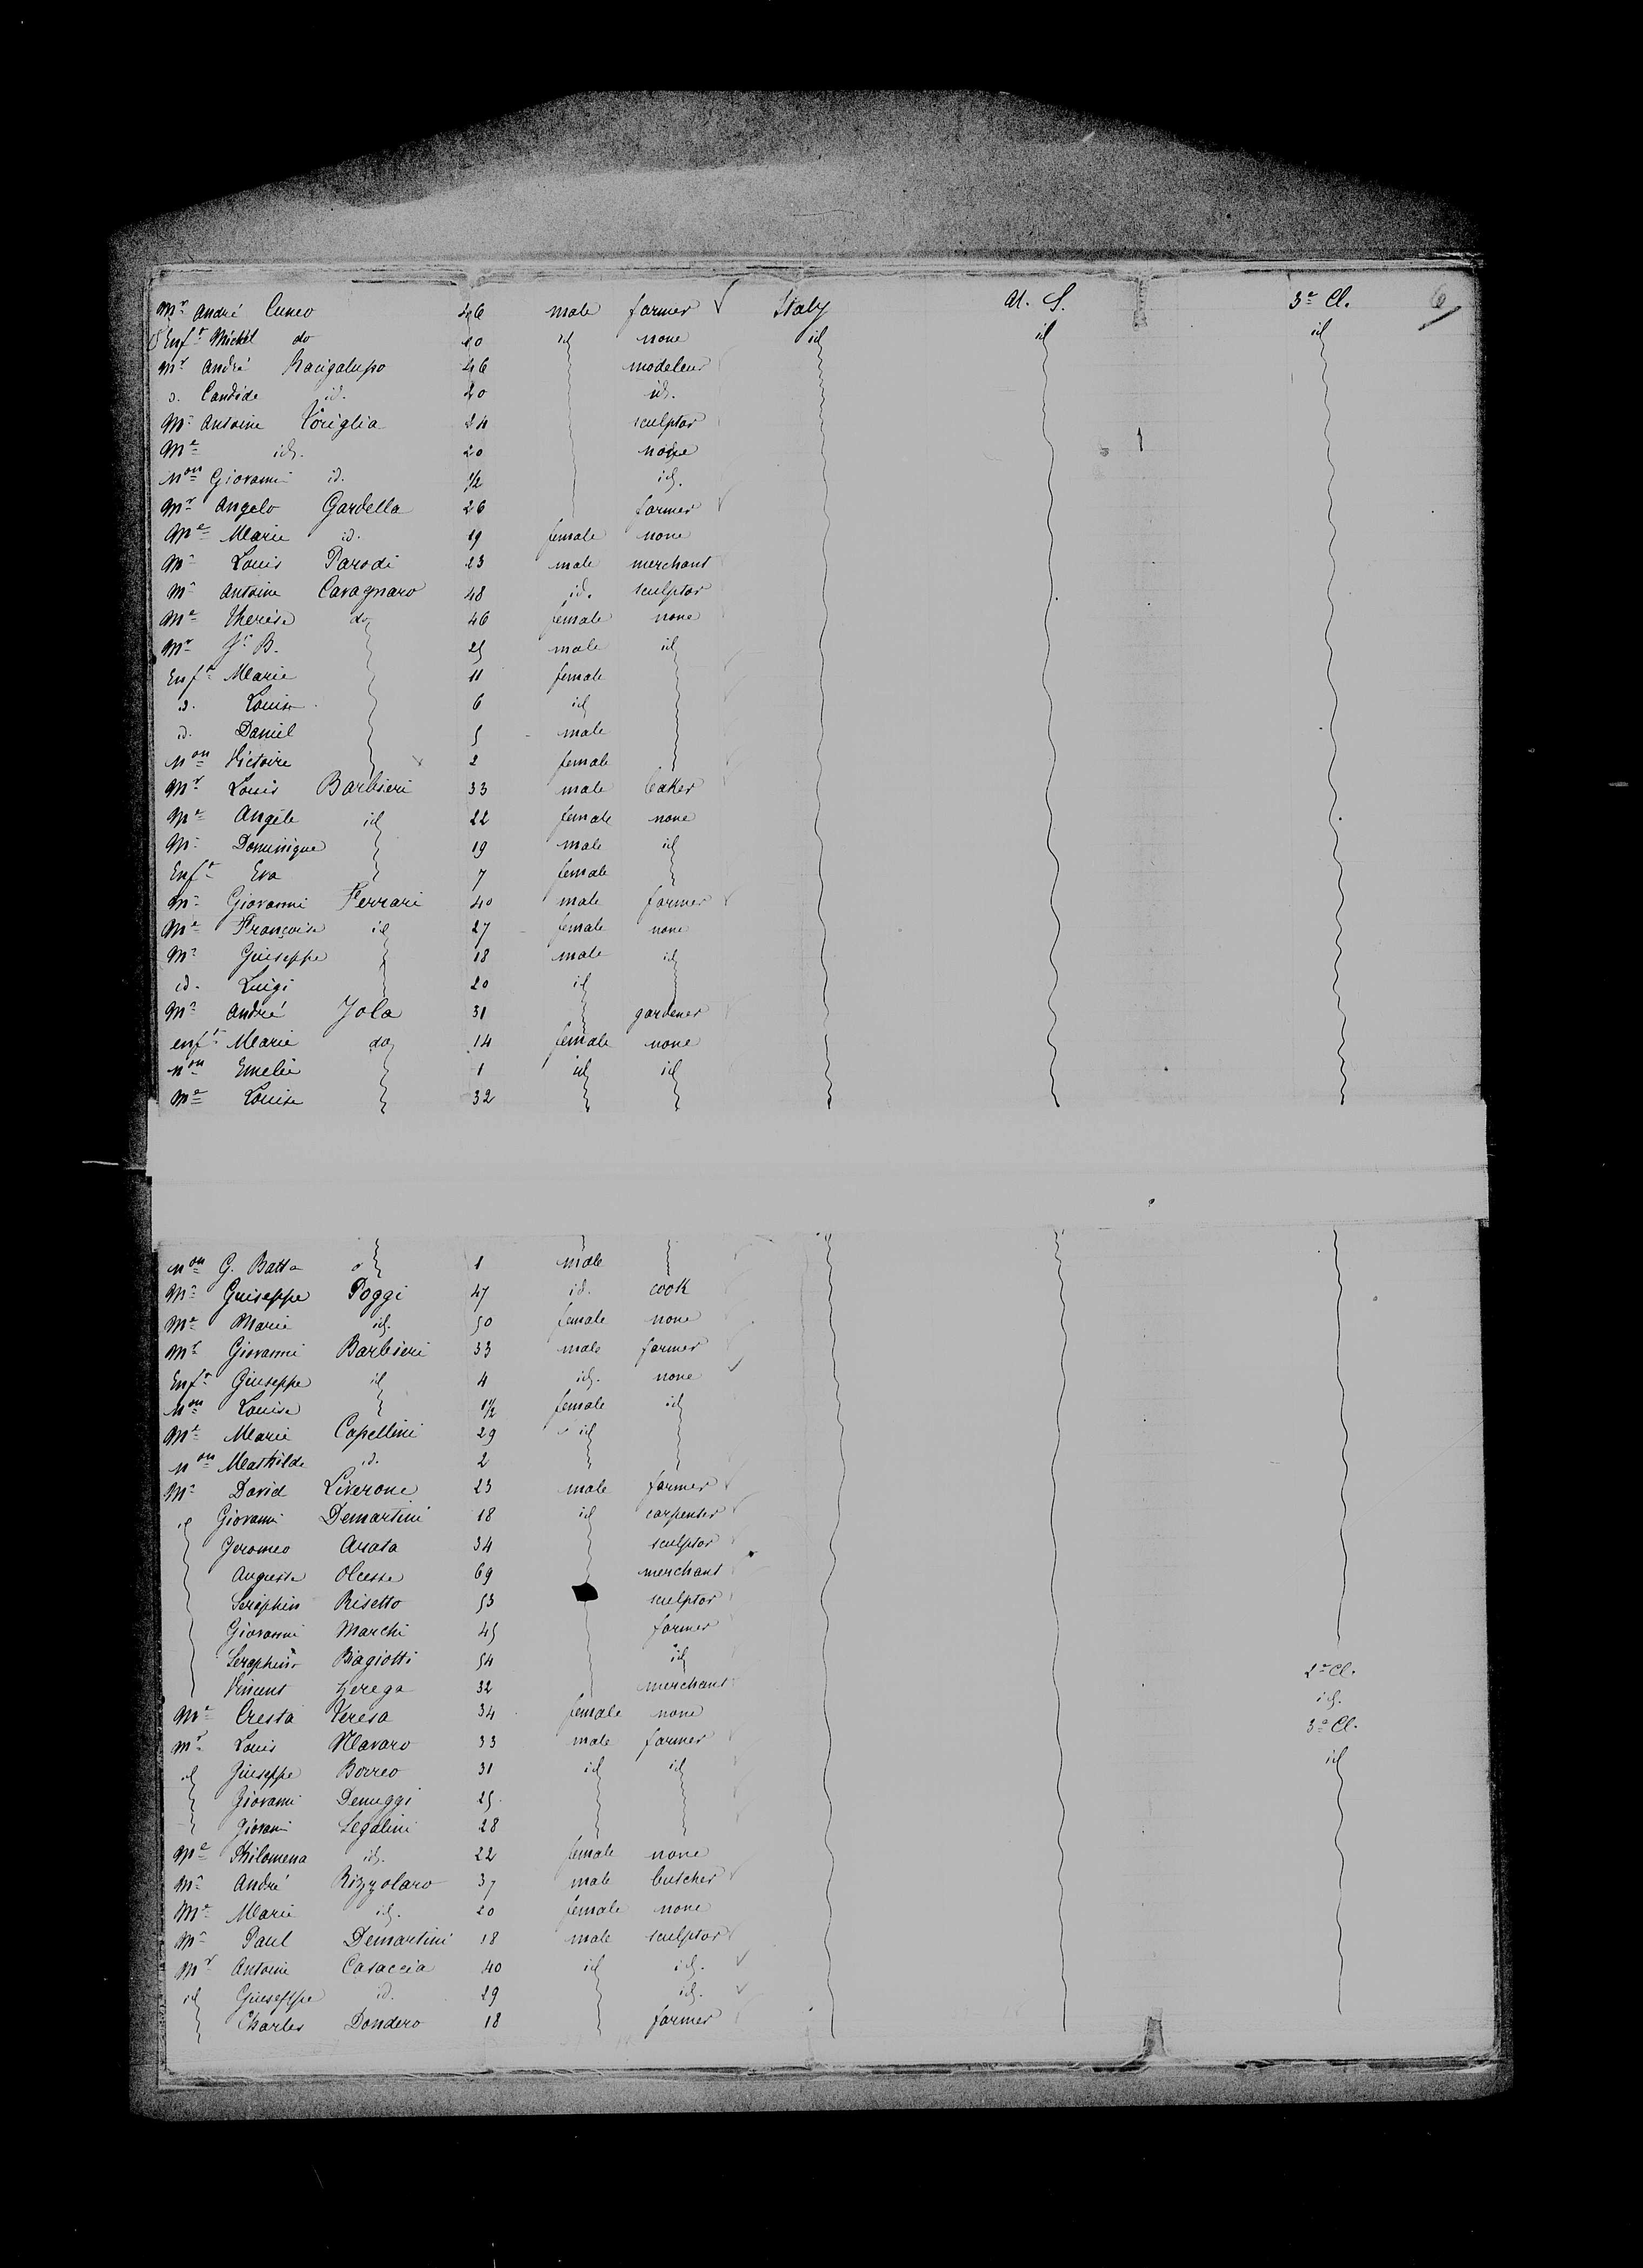 Mr André Cuneo 46 male farmer Italy U. S. 3e Cl. 6
Enft Michel do 10 id none id id id
Mr André Racigalupo 46 modeleur
d. Candide id. 20 id.
Mr Antoine Voriglia 24 sculptor
Me id. 20 none
Non Giovanni id. 1/2 id.
Mr Angelo Gardella 26 farmer
Me Marie id. 19 female none
Mr Louis Parodi 23 male merchant
Mr Antoine Cavagnaro 48 id. sculptor
Me Therese do 46 female none
Mr B. 25 male id
Enft Marie 11 female
id. Louise 6 id
id. Daniel 5 male
Non Victoire 2 female
Mr Louis Barbieri 33 male baker
Me Angèle id 22 female none
Mr Dominique 19 male id
Enft Eva 7 female
Mr Giovanni Ferrari 40 male farmer
Me Françoise id 27 female none
Mr Guiseppe 18 male id
id. Luigi 20 id
Mr André Jola 31 gardener
enft Marie do 14 female none
non Emelie 1 id id
Me Louise 32
non G. Batta 1 male
Mr Guiseppe Poggi 47 id. cook
Me Marie id. 50 female none
Mr Giovanni Barbieri 33 male farmer
Enft Giuseppe id 4 id. none
Non Louise 1/2 female id
Me Marie Capellini 29 id
non Mathilde id. 2
Mr David Liverone 23 male farmer
id Giovanni Demartini 18 id carpenter
Jeromeo Arata 34 sculptor
Auguste Olcese 69 merchant
Seraphin Risetto 53 sculptor
Giovanni Marchi 45 farmer
Seraphin Biagiotti 54 id 2e Cl.
Vincent Zerega 32 merchant id.
Me Cresta Teresa 34 female none 3e Cl.
Mr Louis Navaro 33 male farmer id
id Giuseppe Borreo 31 id id
Giovanni Denuggi 25
Giovanni Segalini 28
Me Philomena id. 22 female none
Mr André Rizzolaro 37 male butcher
Me Marie id. 20 female none
Mr Paul Demartini 18 male sculptor
Mr Antoine Casaccia 40 id id.
id Guiseppe id. 29 id.
Charles Dondero 18 farmer